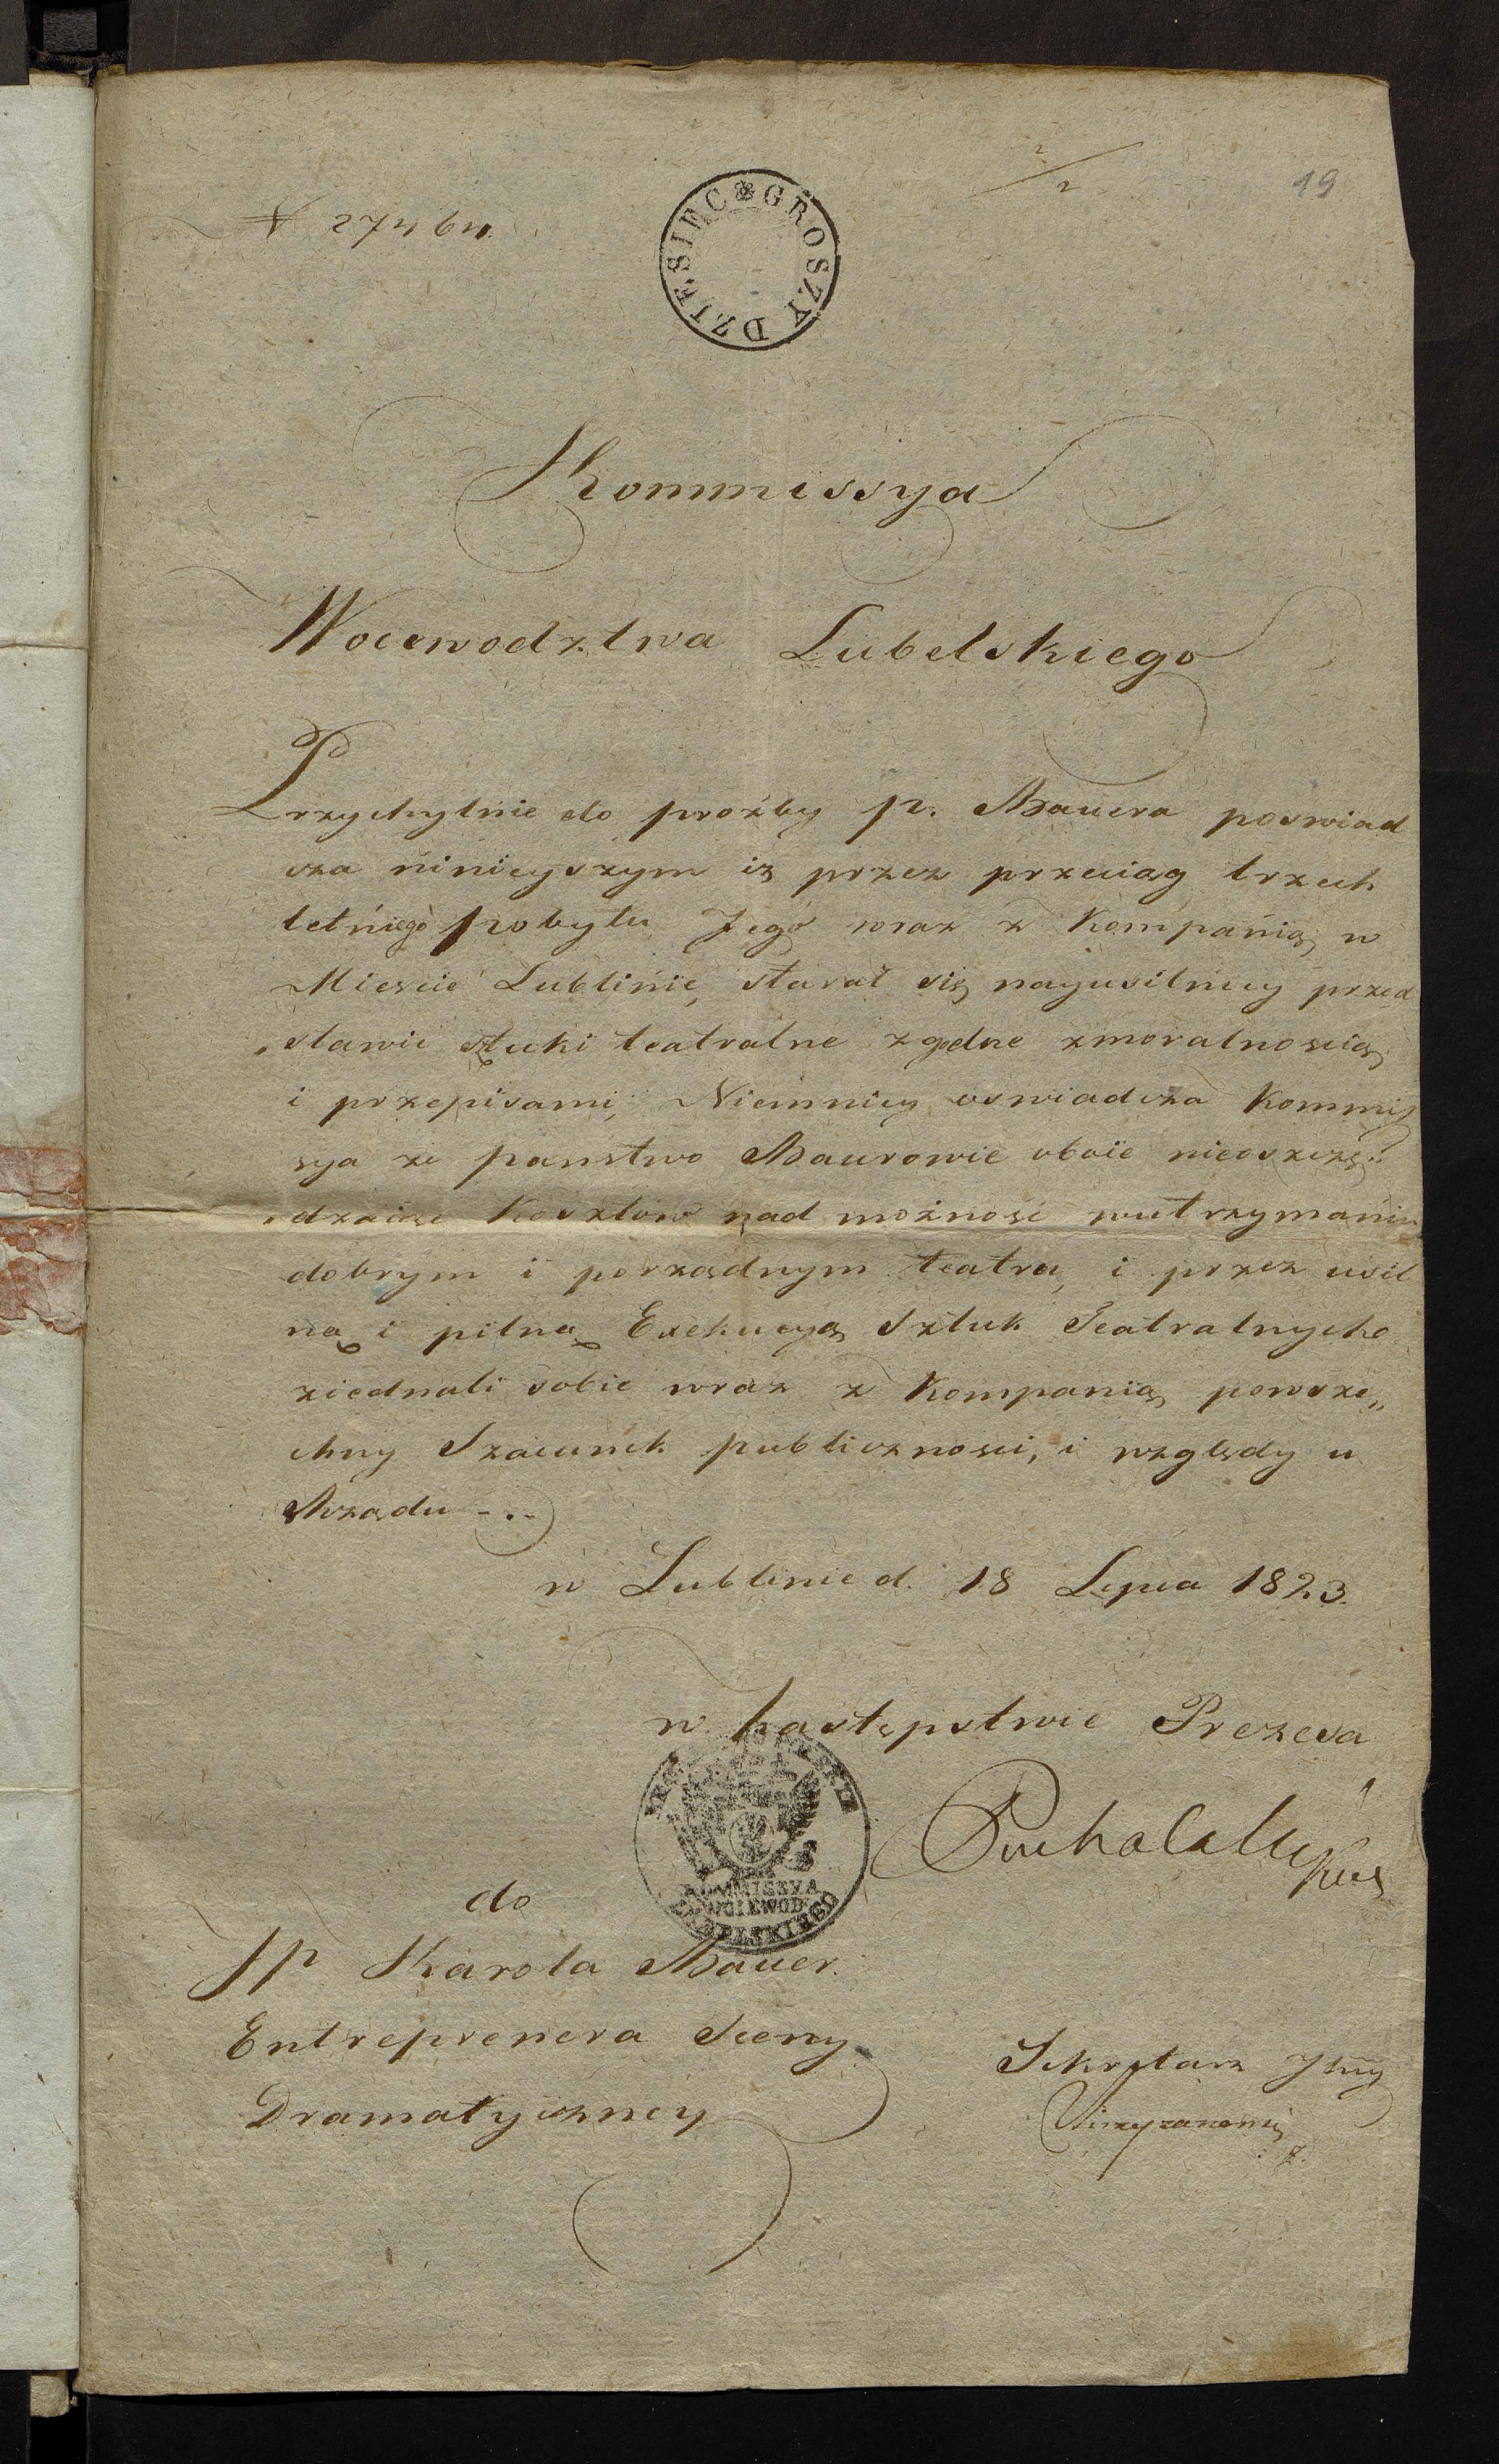 2/2
19
N 27464.
GROSZY DZIESIEC
Kommissya
Woiewodztwa Lubelskiego
Przychylnie do proźby p. Bauera poswiad
cza ninieyszym iz przez przeciąg trzech
letniego pobytu Jego wraz z Kompanią w
Miescie Lublinie, starał się nayusilniey przed
„stawic sztuki teatralne zgodne zmoralnoscią
i przepisami, Niemniey oswiadcza Kommis
sya ze panstwo Baurowie oboie nieoszczę„
„dzaiąc Kosztow nad możnosc wutrzymaniu
dobrym i porządnym teatru, i przez usil
ną i pilną Exekucyą Sztuk Teatralnych
ziednali sobie wraz z Kompanią powsze„
chny Szacunek publicznosci, i względy u
Rządu -.-
w Lublinie d. 18 Lipca 1823.
w Zastępstwie Prezesa
KOMMISSYA
WOIEWOD
LUBELSKIEGO
do
JP Karola Bauer.
Entreprenera Sceny
Dramatyczney
Sekretarz Jlny